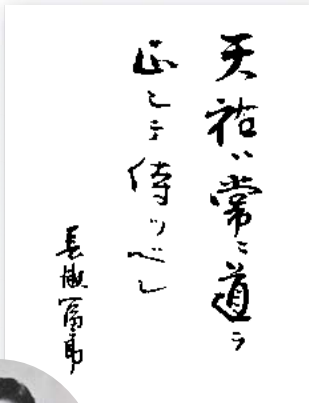 天祐ハ常ニ道ヲ
正シテ待ツベシ
長瀬富郎